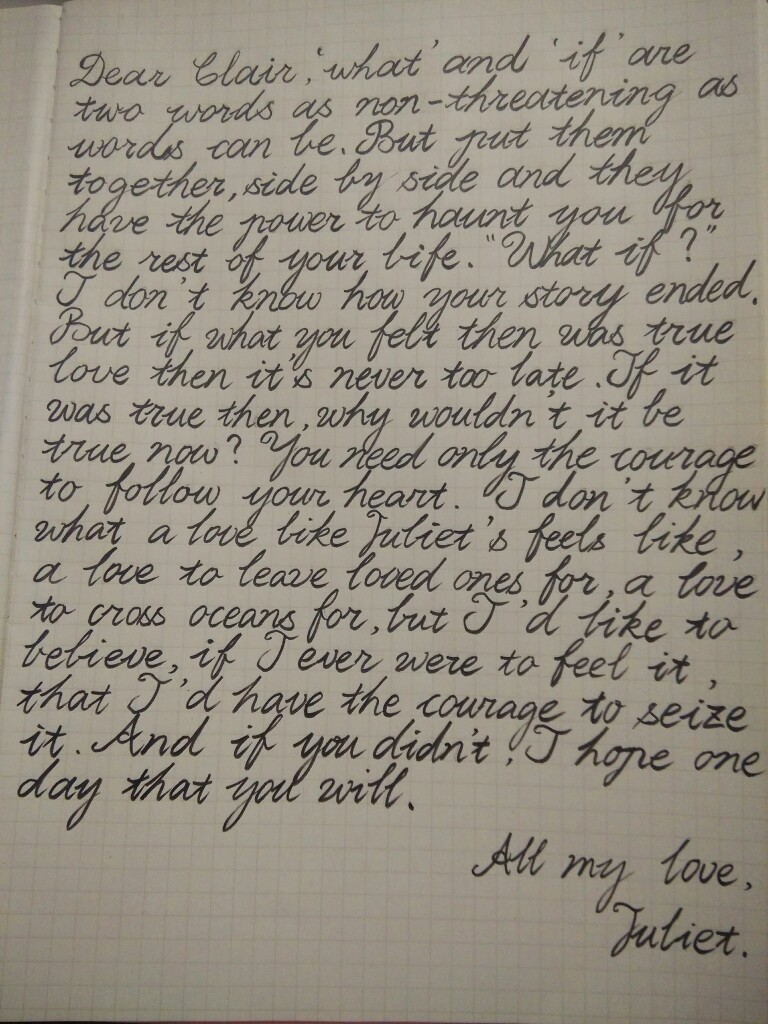 Dear Clair, 'what' and 'if' are
two words as non-threatening as
words can be. But put them
together, side by side and they
have the power to haunt you for
the rest of your life. "What if?"
I don't know how your story ended.
But if what you felt then was true
love then it's never too late. If it
was true then, why wouldn't it be
true now? You need only the courage
to follow your heart. I don't know
what a love like Juliet's feels like,
a love to leave loved ones for, a love
to cross oceans for, but I'd like to
believe, if I ever were to feel it,
that I'd have the courage to seize
it. And if you didn't, I hope one
day that you will.
All my love,
Juliet.